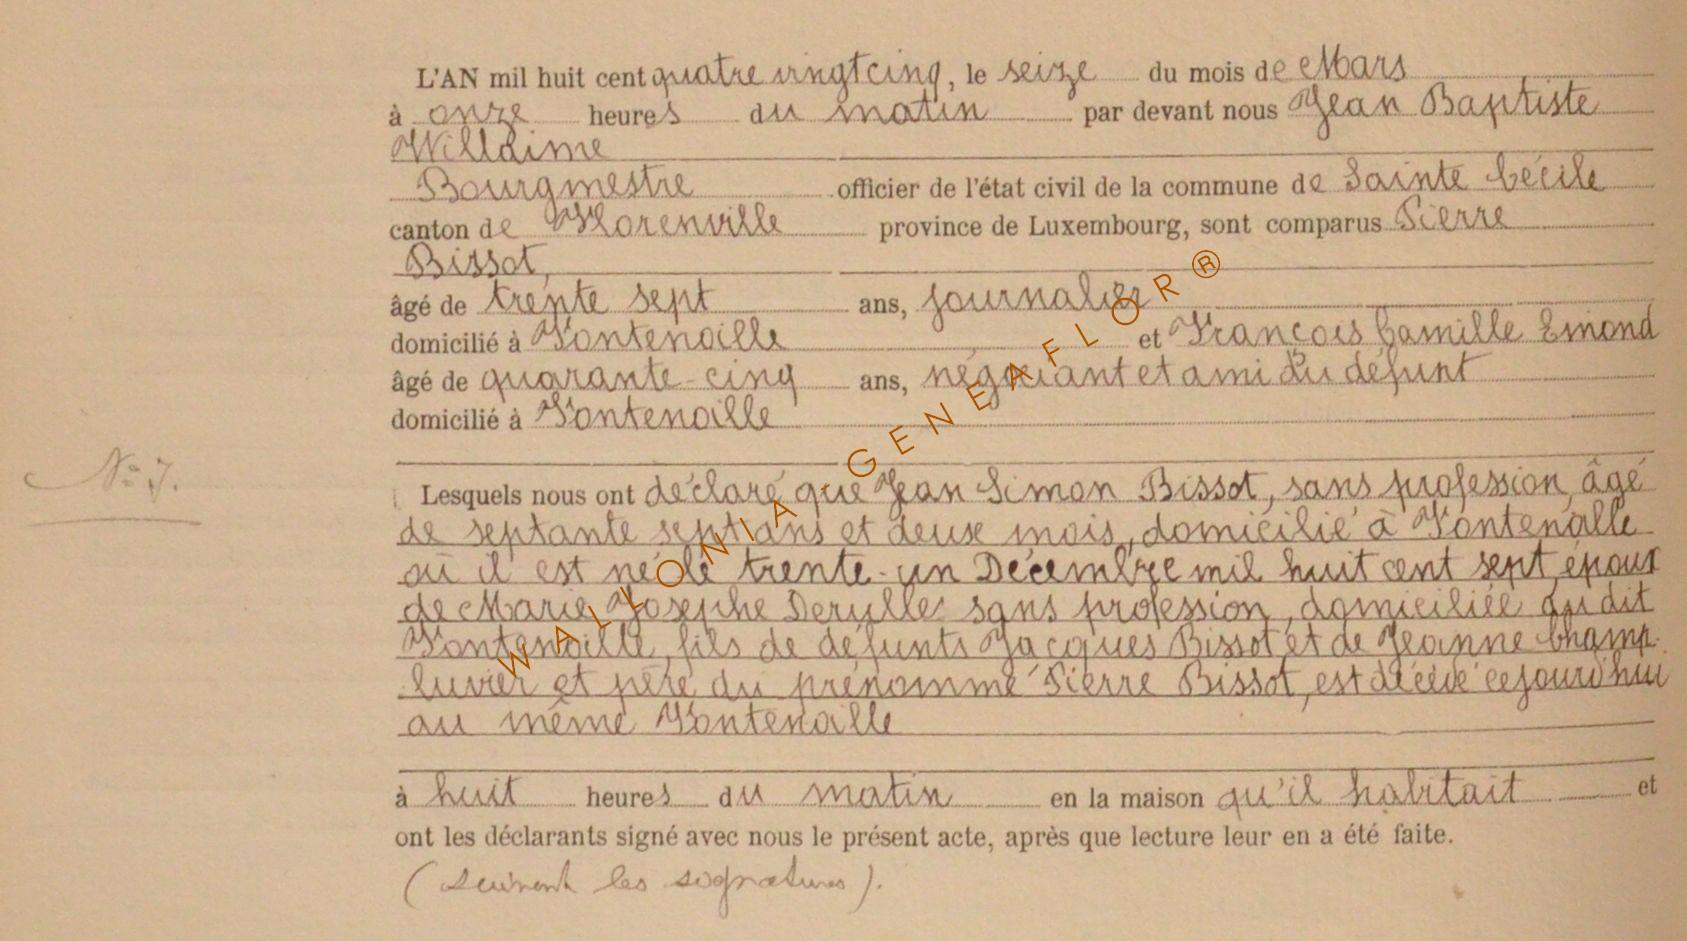 L'AN mil huit cent quatre vingt cinq, le seize du mois de Mars
à onze heures du matin par devant nous Jean Baptiste
Willaime
Bourgmestre officier de l'état civil de la commune de Sainte Cécile
canton de Florenville province de Luxembourg, sont comparus Pierre
Bissot,
âgé de trente sept ans, journalier
domicilié à Fontenoille et François Camille Emond
âgé de quarante-cinq ans, négociant et ami du défunt
domicilié à Fontenoille
N° 7.
Lesquels nous ont déclaré que Jean Simon Bissot, sans profession, âgé
de septante sept ans et deux mois, domicilié à Fontenoille
où il est né le trente-un Décembre mil huit cent sept, époux
de Marie Josephe Derulle sans profession, domiciliée au dit
Fontenoille, fils de défunts Jacques Bissot et de Jeanne Champ-
luvier et père du prénommé Pierre Bissot, est décédé cejourd'hui
au même Fontenoille
à huit heures du matin en la maison qu'il habitait et
ont les déclarants signé avec nous le présent acte, après que lecture leur en a été faite.
(suivent les signatures).
WALLONIA-GENEAFLOR®